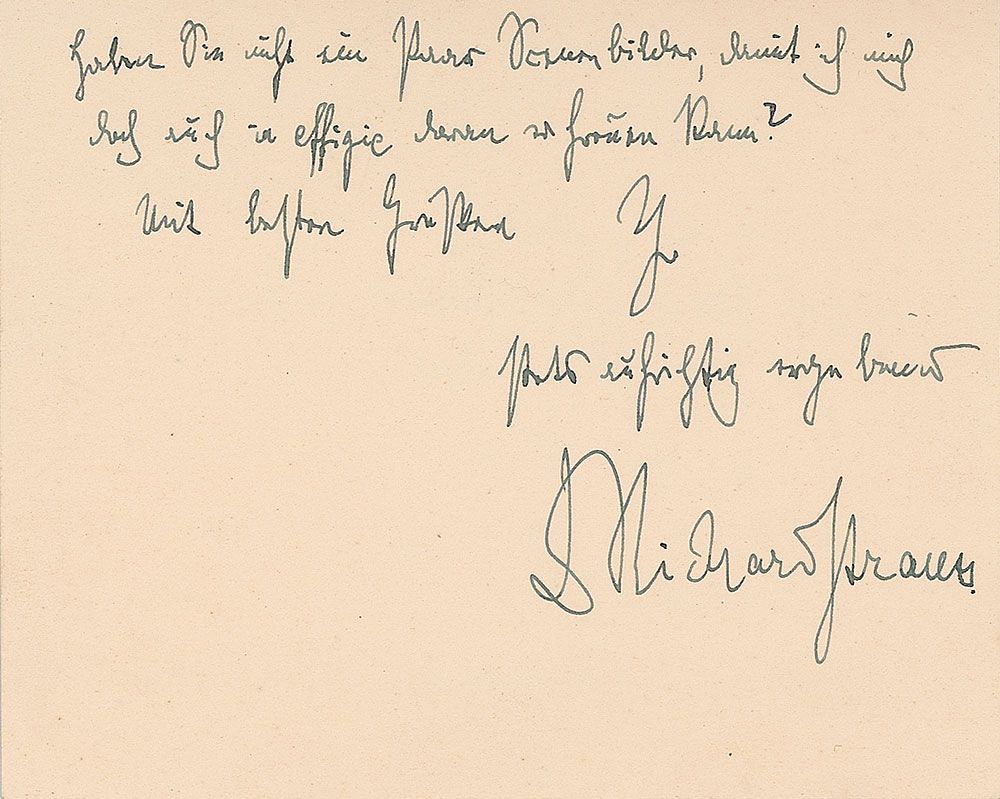 Haben Sie nicht ein Paar Scenenbilder, damit ich mich
doch auch in effigie daran erfreuen kann?
Mit besten Grüßen Ihr
stets aufrichtig ergebener
Dr Richard Strauss.